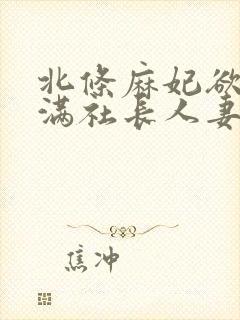 北條麻妃欲
满社长人妻
焦冲